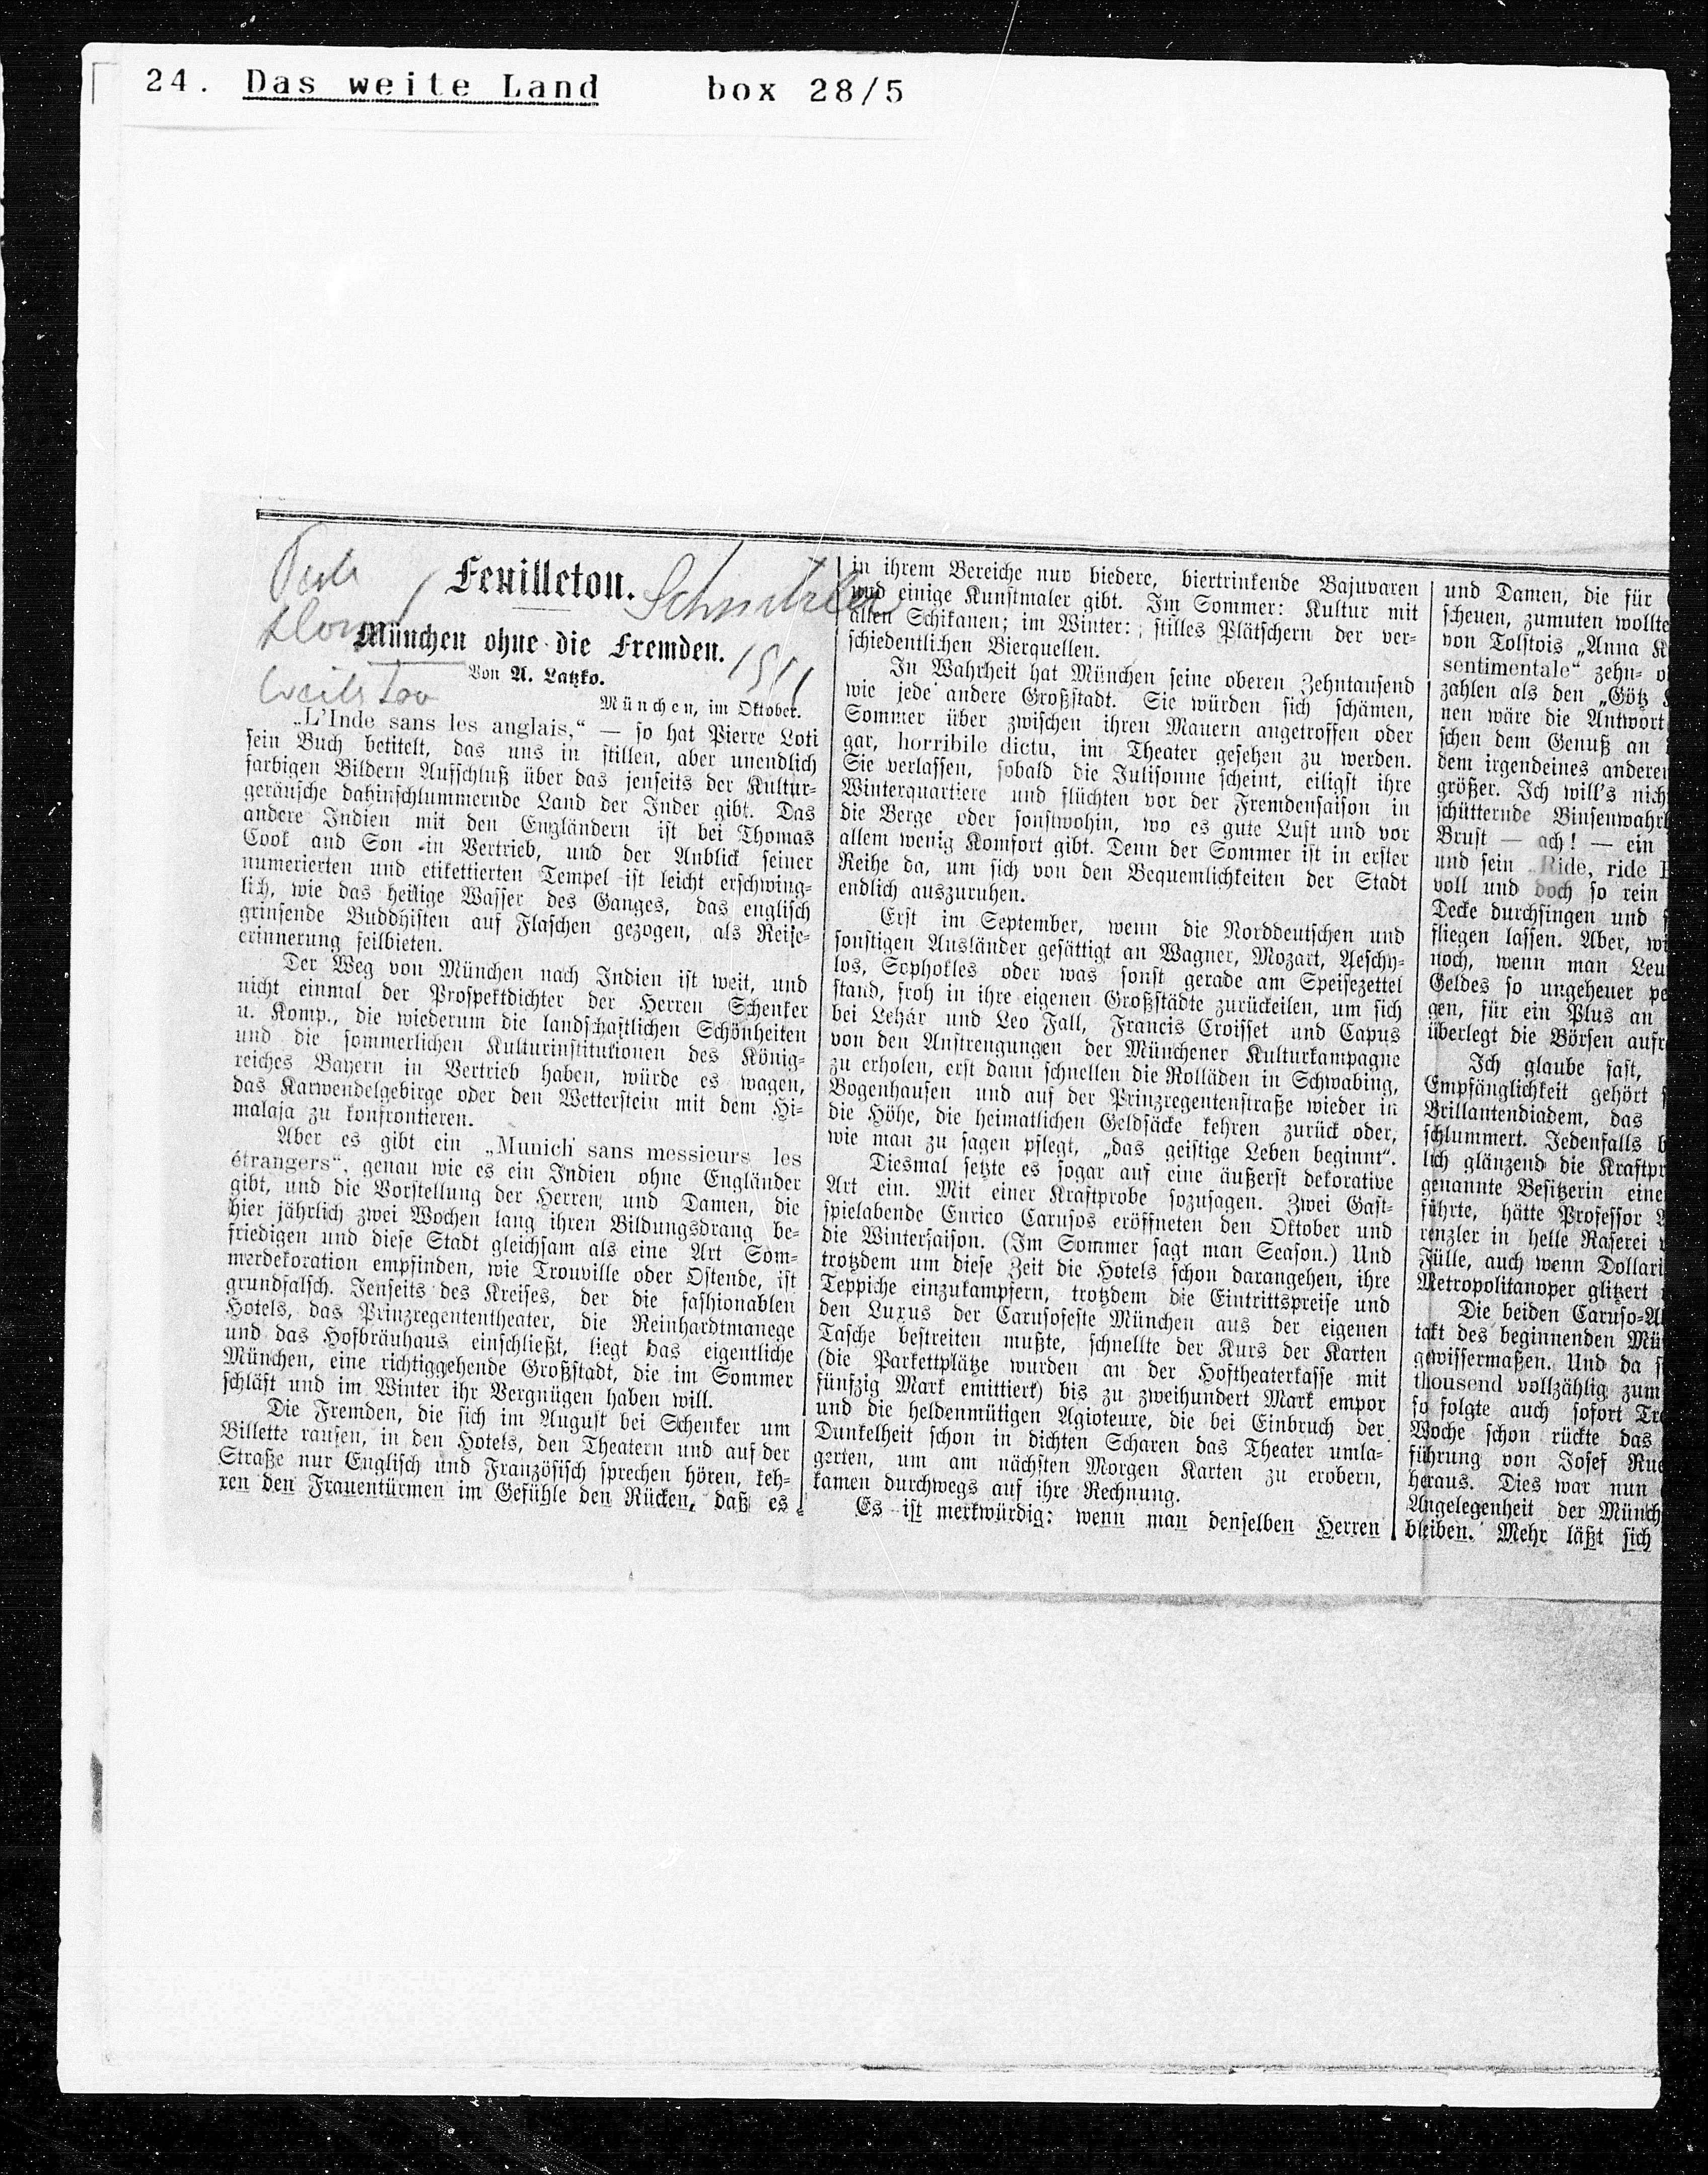 24. Das weite Land box 28/5
Feuilleton.
Schnitzler
München ohne die Fremden.
1911
Von A. Latzko.
München, im Oktober.
„L'Inde sans les anglais,“ — so hat Pierre Loti
sein Buch betitelt, das uns in stillen, aber unendlich
farbigen Bildern Aufschluß über das jenseits der Kultur-
geräusche dahinschlummernde Land der Inder gibt. Das
andere Indien mit den Engländern ist bei Thomas
Cook and Son in Vertrieb, und der Anblick seiner
numerierten und etikettierten Tempel ist leicht erschwing-
lich, wie das heilige Wasser des Ganges, das englisch
grinsende Buddhisten auf Flaschen gezogen, als Reise-
erinnerung feilbieten.
Der Weg von München nach Indien ist weit, und
nicht einmal der Prospektdichter der Herren Schenker
u. Komp., die wiederum die landschaftlichen Schönheiten
und die sommerlichen Kulturinstitutionen des König-
reiches Bayern in Vertrieb haben, würde es wagen,
das Karwendelgebirge oder den Wetterstein mit dem Hi-
malaja zu konfrontieren.
Aber es gibt ein „Munich sans messieurs les
étrangers“, genau wie es ein Indien ohne Engländer
gibt, und die Vorstellung der Herren und Damen, die
hier jährlich zwei Wochen lang ihren Bildungsdrang be-
friedigen und diese Stadt gleichsam als eine Art Som-
merdekoration empfinden, wie Trouville oder Ostende, ist
grundfalsch. Jenseits des Kreises, der die fashionablen
Hotels, das Prinzregententheater, die Reinhardtmanege
und das Hofbräuhaus einschließt, liegt das eigentliche
München, eine richtiggehende Großstadt, die im Sommer
schläft und im Winter ihr Vergnügen haben will.
Die Fremden, die sich im August bei Schenker um
Billette raufen, in den Hotels, den Theatern und auf der
Straße nur Englisch und Französisch sprechen hören, keh-
ren den Frauentürmen im Gefühle den Rücken, daß es
in ihrem Bereiche nur biedere, biertrinkende Bajuvaren
und einige Kunstmaler gibt. Im Sommer: Kultur mit
allen Schikanen; im Winter: stilles Plätschern der ver-
schiedentlichen Bierquellen.
In Wahrheit hat München seine oberen Zehntausend
wie jede andere Großstadt. Sie würden sich schämen,
Sommer über zwischen ihren Mauern angetroffen oder
gar, horribile dictu, im Theater gesehen zu werden.
Sie verlassen, sobald die Julisonne scheint, eiligst ihre
Winterquartiere und flüchten vor der Fremdensaison in
die Berge oder sonstwohin, wo es gute Luft und vor
allem wenig Komfort gibt. Denn der Sommer ist in erster
Reihe da, um sich von den Bequemlichkeiten der Stadt
endlich auszuruhen.
Erst im September, wenn die Norddeutschen und
sonstigen Ausländer gesättigt an Wagner, Mozart, Aeschy-
los, Sophokles oder was sonst gerade am Speisezettel
stand, froh in ihre eigenen Großstädte zurückeilen, um sich
bei Lehár und Leo Fall, Francis Croisset und Capus
von den Anstrengungen der Münchener Kulturkampagne
zu erholen, erst dann schnellen die Rolläden in Schwabing,
Bogenhausen und auf der Prinzregentenstraße wieder in
die Höhe, die heimatlichen Geldsäcke kehren zurück oder,
wie man zu sagen pflegt, „das geistige Leben beginnt“.
Diesmal setzte es sogar auf eine äußerst dekorative
Art ein. Mit einer Kraftprobe sozusagen. Zwei Gast-
spielabende Enrico Carusos eröffneten den Oktober und
die Wintersaison. (Im Sommer sagt man Season.) Und
trotzdem um diese Zeit die Hotels schon darangehen, ihre
Teppiche einzukampfern, trotzdem die Eintrittspreise und
den Luxus der Carusofeste München aus der eigenen
Tasche bestreiten mußte, schnellte der Kurs der Karten
(die Parkettplätze wurden an der Hoftheaterkasse mit
fünfzig Mark emittiert) bis zu zweihundert Mark empor
und die heldenmütigen Agioteure, die bei Einbruch der
Dunkelheit schon in dichten Scharen das Theater umla-
gerten, um am nächsten Morgen Karten zu erobern,
kamen durchwegs auf ihre Rechnung.
Es ist merkwürdig: wenn man denselben Herren
und Damen, die für
scheuen, zumuten wollte
von Tolstois „Anna K
sentimentale“ zehn- o
zahlen als den „Götz
nen wäre die Antwort
schen dem Genuß an
dem irgendeines anderen
größer. Ich will's nich
schütternde Binsenwahrh
Brust — ach! — ein
und sein „Ride, ride
voll und doch so rein
Decke durchsingen und
fliegen lassen. Aber, wi
noch, wenn man Leu
Geldes so ungeheuer pe
gen, für ein Plus an
überlegt die Börsen aufr
Ich glaube fast,
Empfänglichkeit gehört
Brillantendiadem, das
schlummert. Jedenfalls b
lich glänzend die Kraftpr
genannte Besitzerin eine
führte, hätte Professor
renzler in helle Raserei
Fülle, auch wenn Dollari
Metropolitanoper glitzert
Die beiden Caruso-A
takt des beginnenden Mü
gewissermaßen. Und da s
thousend vollzählig zum
so folgte auch sofort Tr
Woche schon rückte das
führung von Josef Rue
heraus. Dies war nun
Angelegenheit der Münch
bleiben. Mehr läßt sich